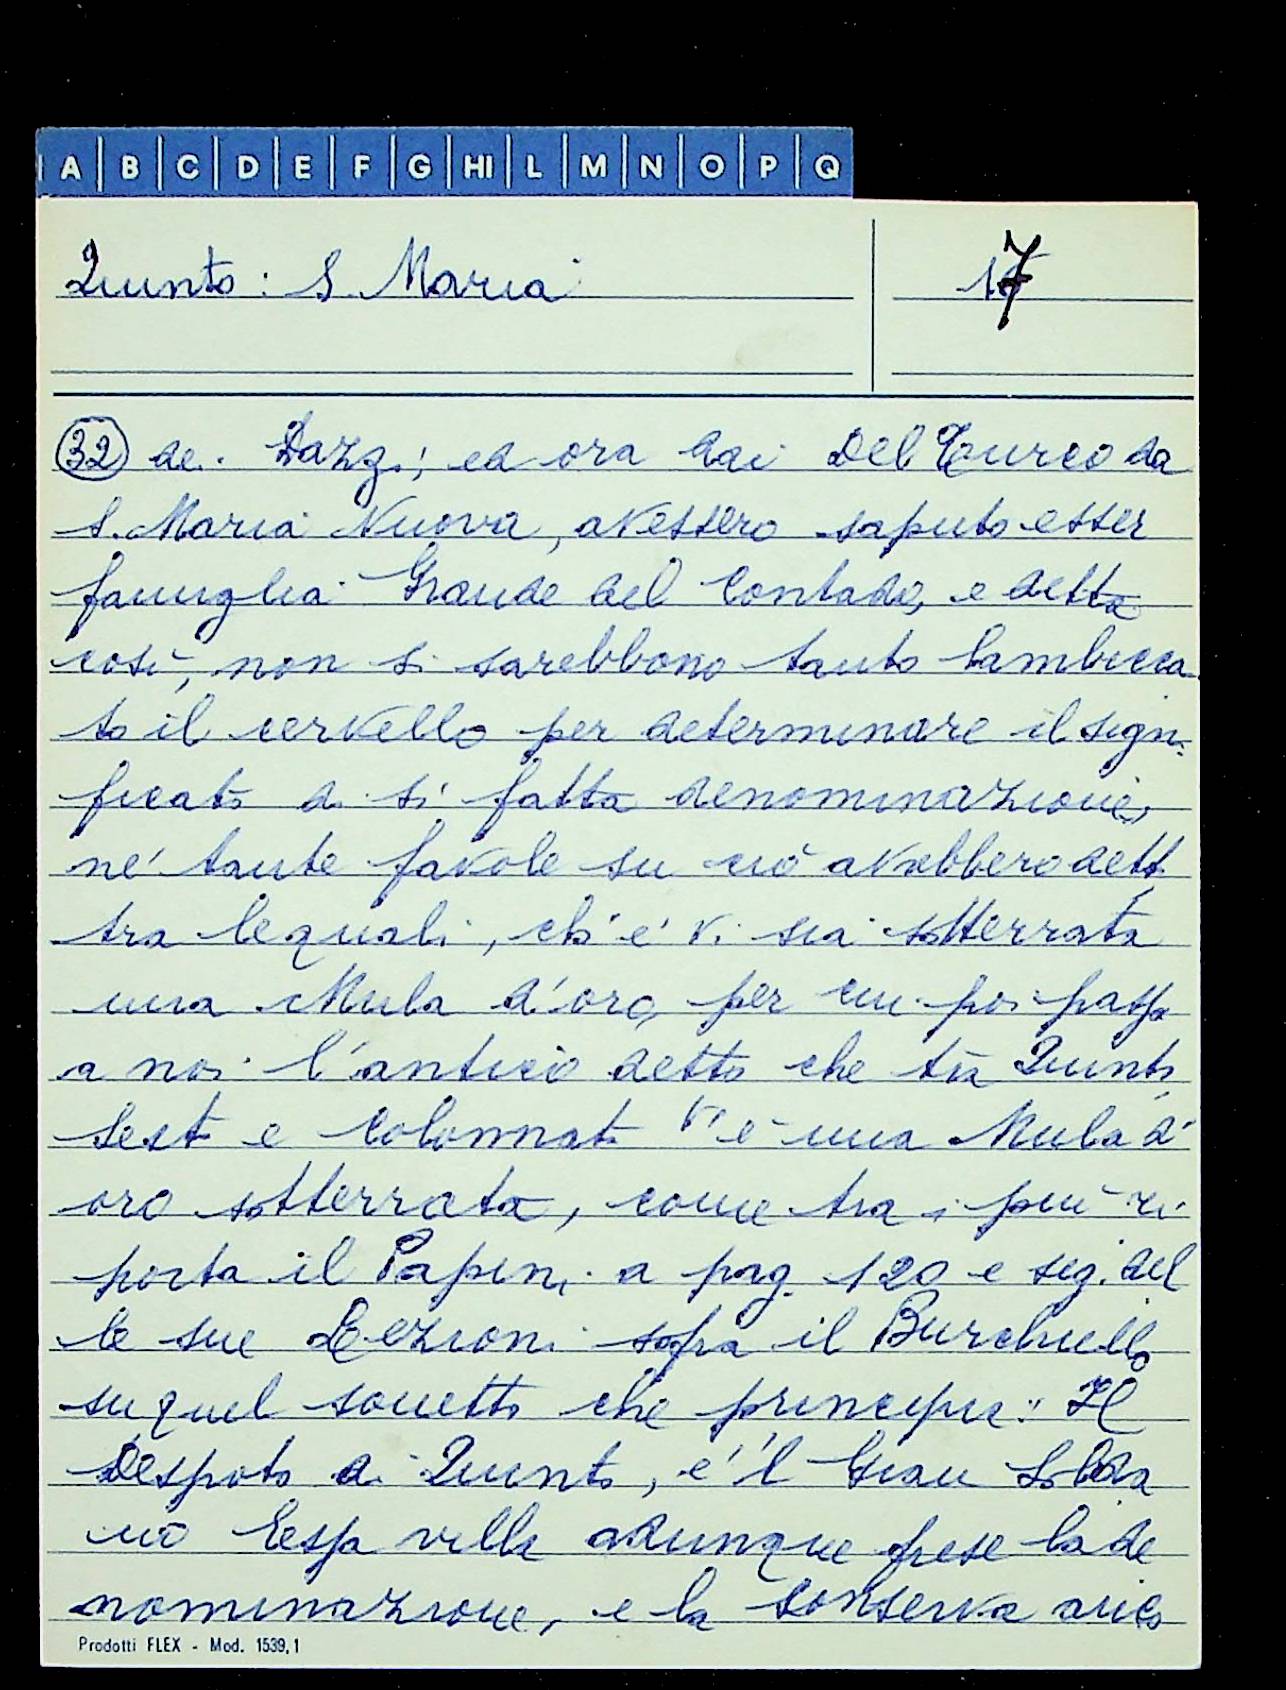 A B C D E F G HI L M N O P Q
Quinto: S. Maria
17
32 de. Dazzi, ed ora dai Del Turco da
S. Maria Nuova, avessero saputo esser
famiglia Grande del Contado, e detta
così, non si sarebbono tanto lambicca
to il cervello per determinare il signi
ficato di sì fatta denominazione,
né tante favole su ciò avrebbero dett
tra le quali, ch'è vi sia sotterrata
una Mula d'oro, per cui poi passa
a noi l'antico detto che tra Quinto
Sesto e Colonnata v'è una Mula d'
oro sotterrata, come tra i più ri
porta il Papini a pag. 120 e seg. del
le sue Lezioni sopra il Burchiello
su quel sonetto che principia: "Il
Despoto di Quinto, e'l Gran Solda
no Essa villa adunque prese la de
nominazione, e la conserva anco
Prodotti FLEX - Mod. 1539,1